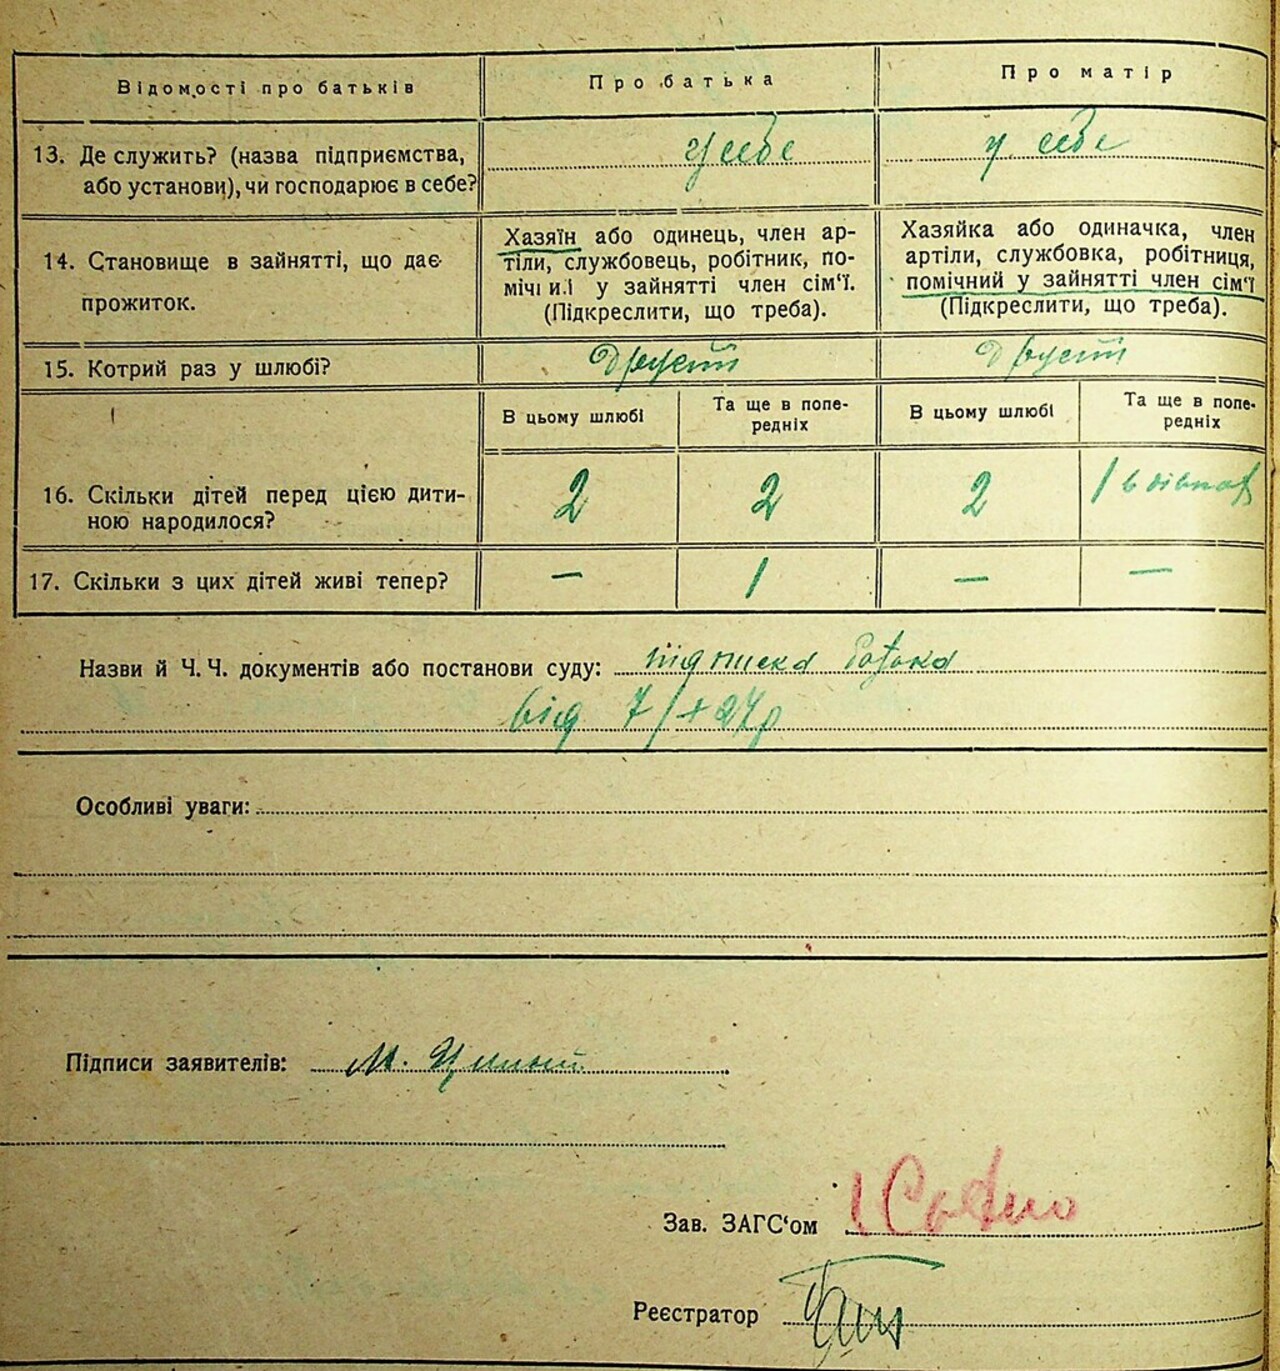 Відомості про батьків
Про батька
Про матір
13. Де служить? (назва підприємства,
або установи), чи господарює в себе?
у себе
у себе
14. Становище в зайнятті, що дає
прожиток.
Хазяїн або одинець, член ар-
тіли, службовець, робітник, по-
мічн и.і у зайнятті член сім'ї.
(Підкреслити, що треба).
Хазяйка або одиначка, член
артіли, службовка, робітниця,
помічний у зайнятті член сім'ї
(Підкреслити, що треба).
15. Котрий раз у шлюбі?
В цьому шлюбі
Та ще в попе-
редніх
В цьому шлюбі
Та ще в попе-
редніх
16. Скільки дітей перед цією дити-
ною народилося?
2
2
2
1
17. Скільки з цих дітей живі тепер?
—
1
—
—
Назви й Ч. Ч. документів або постанови суду: підписка
від 7/X 27р
Особливі уваги:
Підписи заявителів: М.
Зав. ЗАГС'ом
Реєстратор